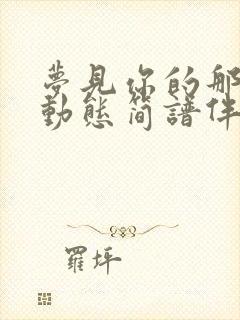 夢見你的那
動態簡譜伴
羅坪